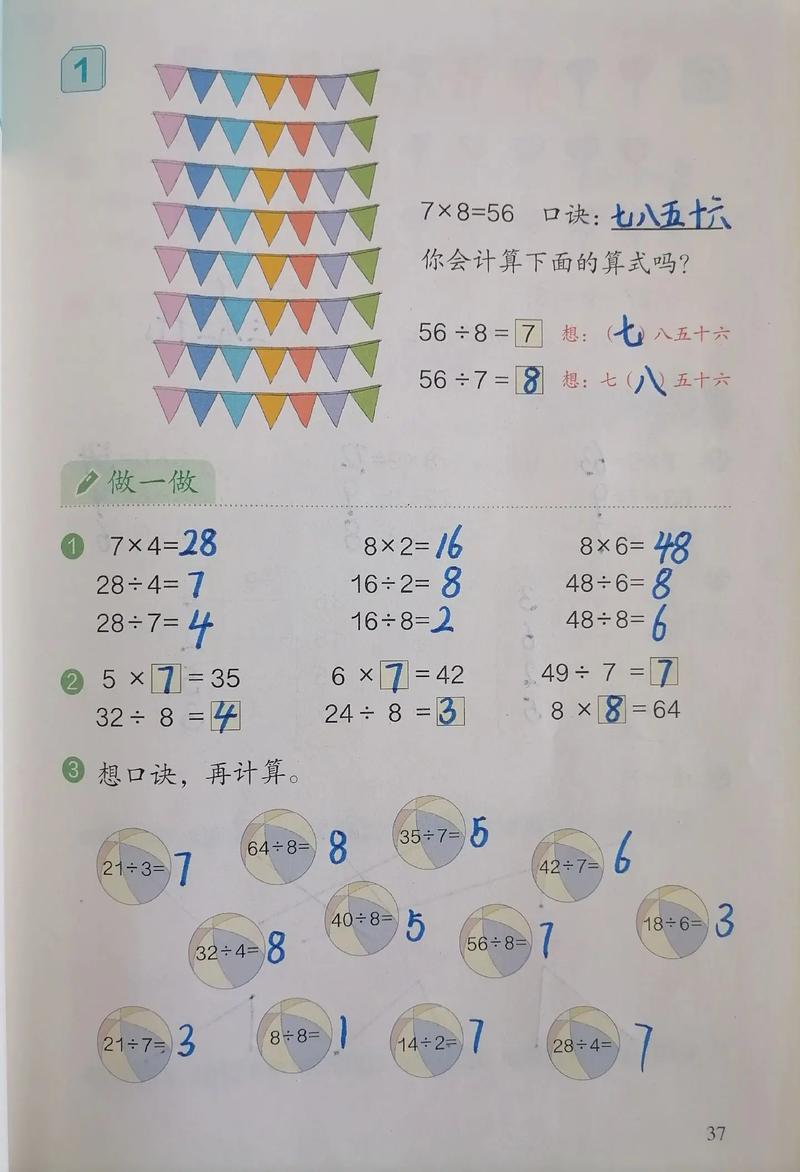 1
7×8=56 口诀：七八五十六
你会计算下面的算式吗？
56÷8=7 想：（七）八五十六
56÷7=8 想：七（八）五十六
做一做
1 7×4=28 8×2=16 8×6=48
28÷4=7 16÷2=8 48÷6=8
28÷7=4 16÷8=2 48÷8=6
2 5×7=35 6×7=42 49÷7=7
32÷8=4 24÷8=3 8×8=64
3 想口诀，再计算。
21÷3=7 64÷8=8 35÷7=5 42÷7=6
32÷4=8 40÷8=5 56÷8=7 18÷6=3
21÷7=3 8÷8=1 14÷2=7 28÷4=7
37